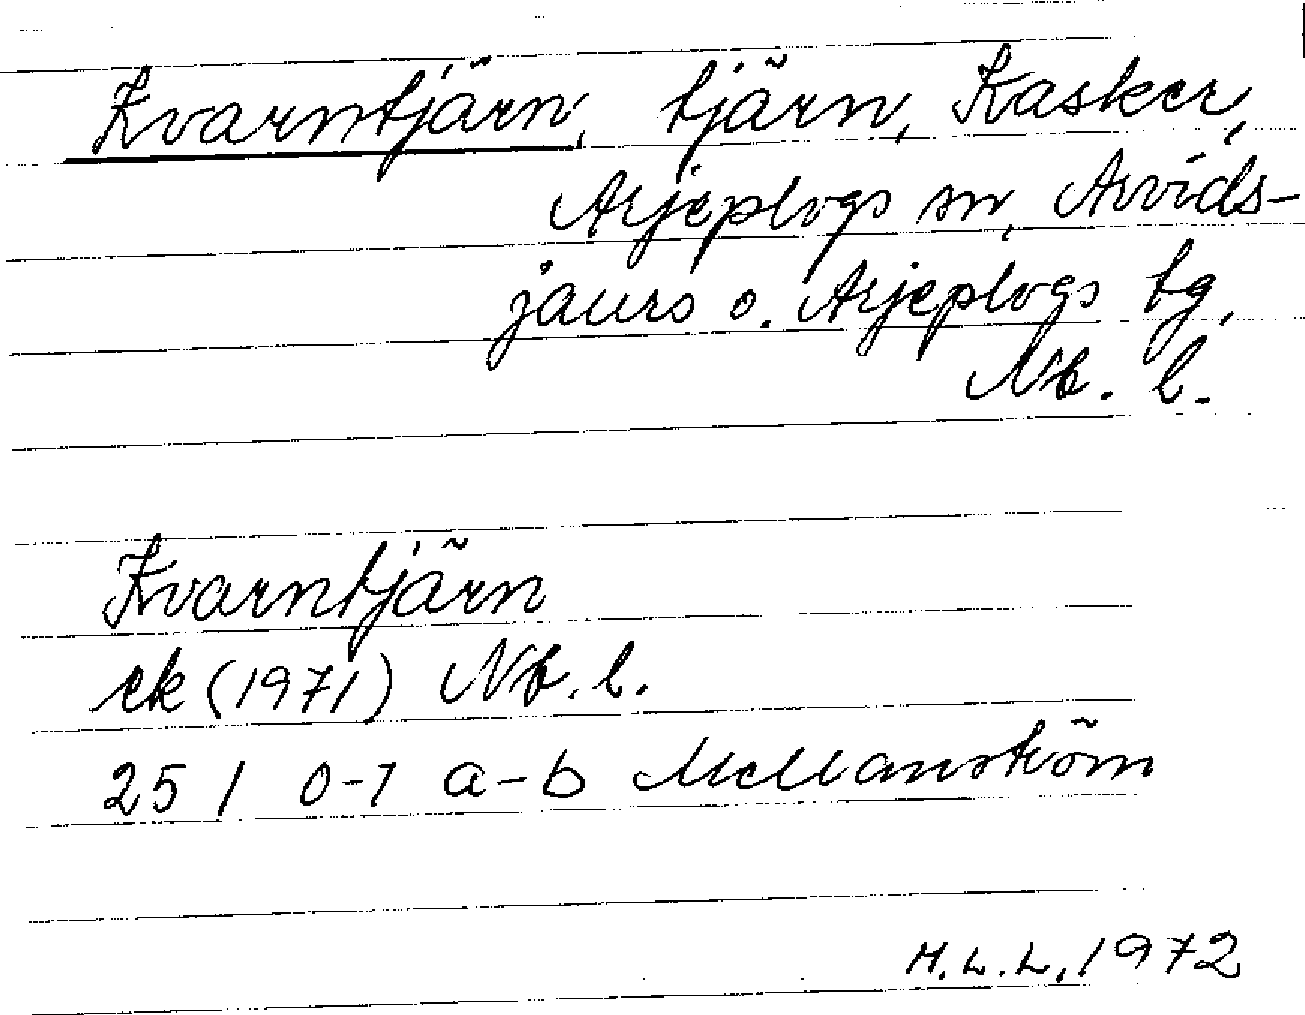 Kvarntjärn, tjärn, Kasker,
Arjeplogs sn, Arvids-
jaurs o. Arjeplogs tg,
Nb. l.
Kvarntjärn
ek (1971) Nb. l.
25 I 0-1 a-b Mellanström
H.L.L. 1972